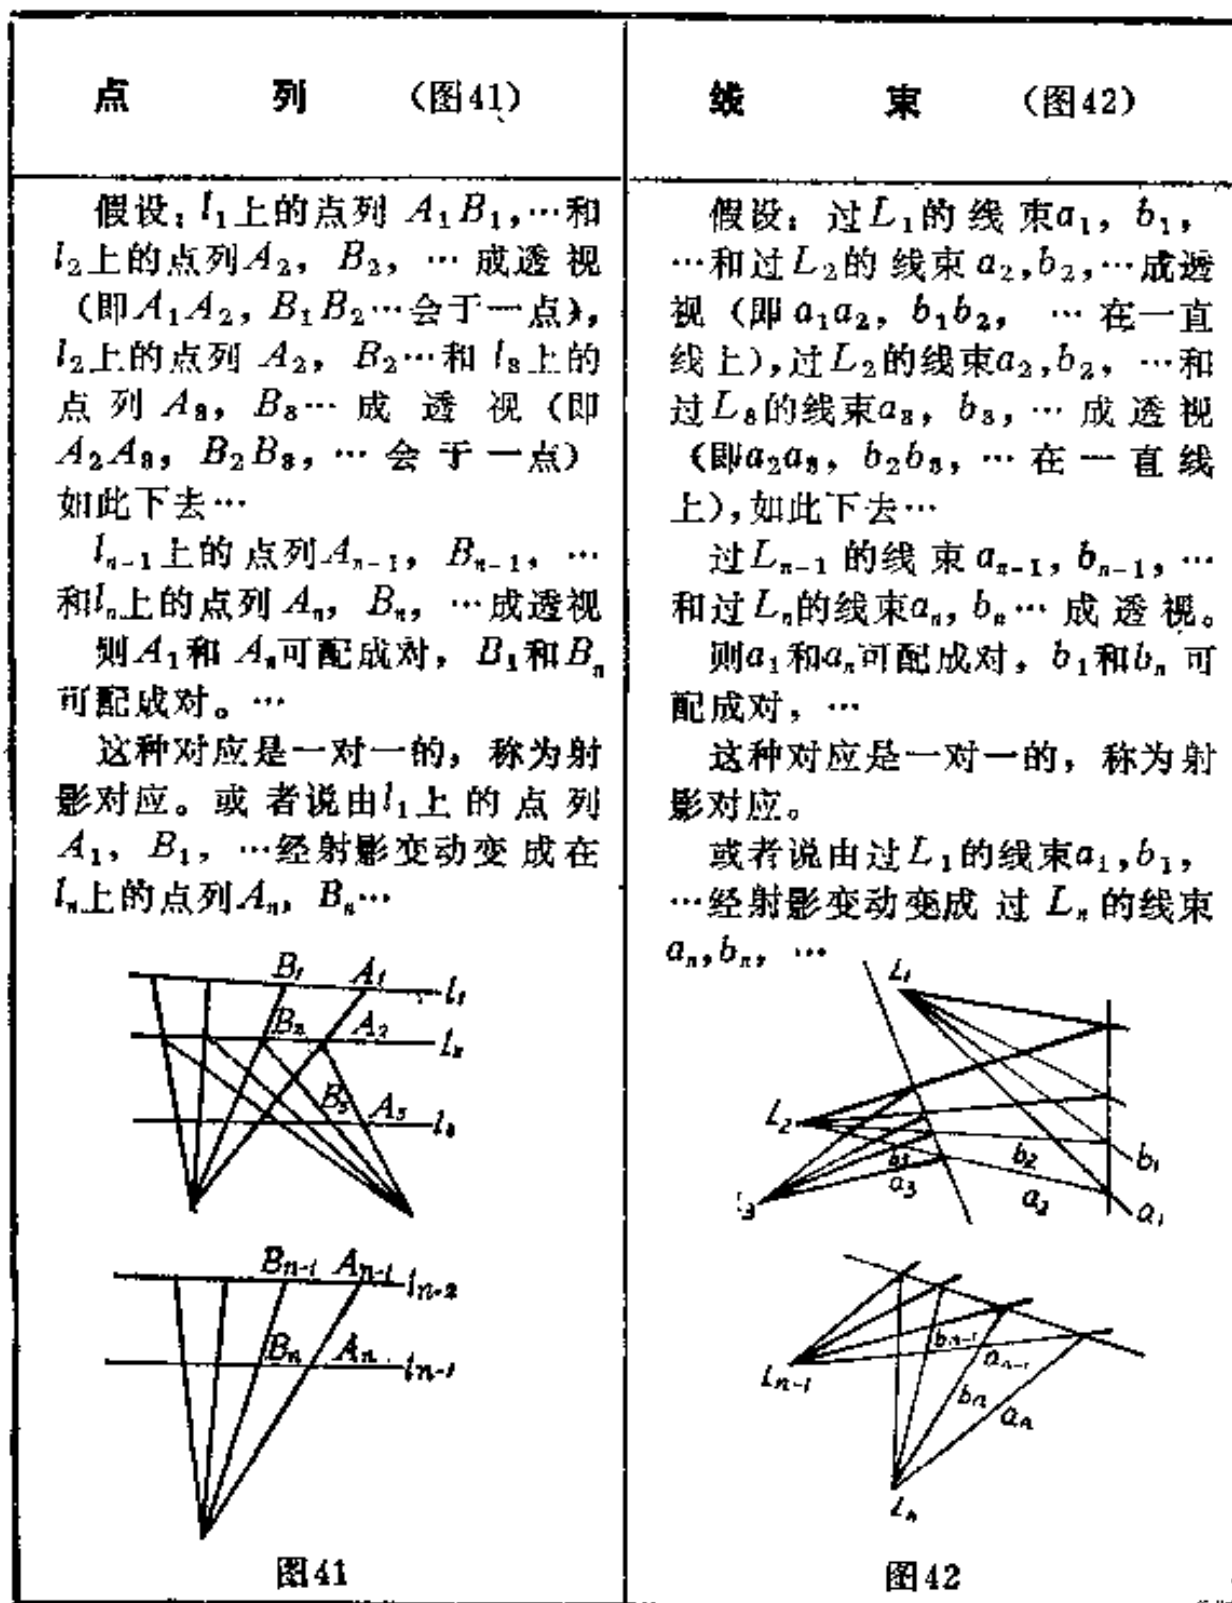 点 列 （图41）
假设：l₁上的点列 A₁B₁，…和
l₂上的点列A₂，B₂，…成透视
（即A₁A₂，B₁B₂…会于一点），
l₂上的点列 A₂，B₂…和 l₃上的
点列 A₃，B₃…成透视（即
A₂A₃，B₂B₃，…会于一点）
如此下去…
lₙ₋₁上的点列Aₙ₋₁，Bₙ₋₁，…
和lₙ上的点列 Aₙ，Bₙ，…成透视
则A₁和 Aₙ可配成对，B₁和Bₙ
可配成对。…
这种对应是一对一的，称为射
影对应。或者说由l₁上的点列
A₁，B₁，…经射影变动变成在
lₙ上的点列Aₙ，Bₙ…
B₁ A₁ l₁
B₂ A₂ l₂
B₃ A₃ l₃
Bₙ₋₁ Aₙ₋₁ lₙ₋₂
Bₙ Aₙ lₙ₋₁
图41
线 束 （图42）
假设：过L₁的线束a₁，b₁，
…和过L₂的线束a₂,b₂,…成透
视（即a₁a₂，b₁b₂，…在一直
线上），过L₂的线束a₂,b₂，…和
过L₃的线束a₃，b₃，…成透视
（即a₂a₃，b₂b₃，…在一直线
上），如此下去…
过Lₙ₋₁的线束aₙ₋₁，bₙ₋₁，…
和过Lₙ的线束aₙ，bₙ…成透视。
则a₁和aₙ可配成对，b₁和bₙ可
配成对，…
这种对应是一对一的，称为射
影对应。
或者说由过L₁的线束a₁,b₁，
…经射影变动变成 过 Lₙ的线束
aₙ,bₙ，…
L₁
L₂
b₂ b₁
a₃
L₃ a₂ a₁
bₙ₋₁
Lₙ₋₁ aₙ₋₁
bₙ aₙ
Lₙ
图42